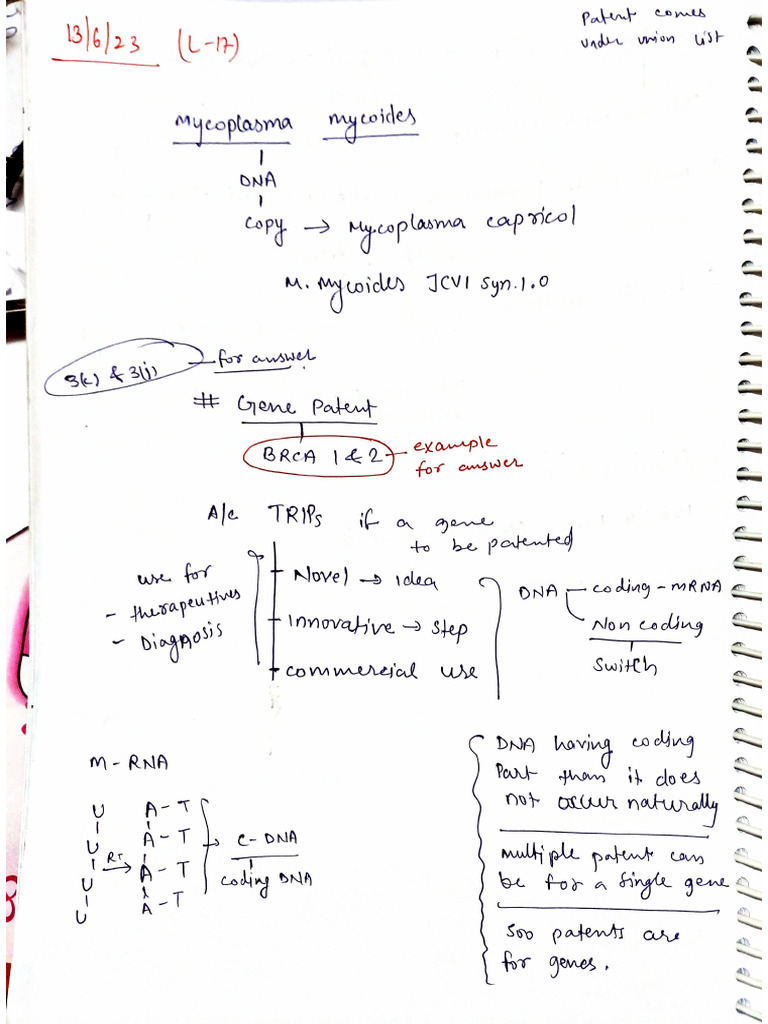 13/6/23 (L-17)
Patent comes
under union list
Mycoplasma mycoides
DNA
copy → Mycoplasma capricol
M. Mycoides JCVI syn.1.0
3(c) & 3(j) — for answer
# Gene Patent
BRCA 1 & 2 — example
for answer
A/c TRIPs if a gene
to be patented
use for
- therapeutives
- Diagnosis
Novel → idea
Innovative → step
commercial use
DNA — coding - mRNA
Non coding
switch
M-RNA
U
U
U
U
RT →
A - T
A - T
A - T
A - T
→ C-DNA
coding DNA
DNA having coding
Part than it does
not occur naturally
multiple patent can
be for a single gene
500 patents are
for genes.